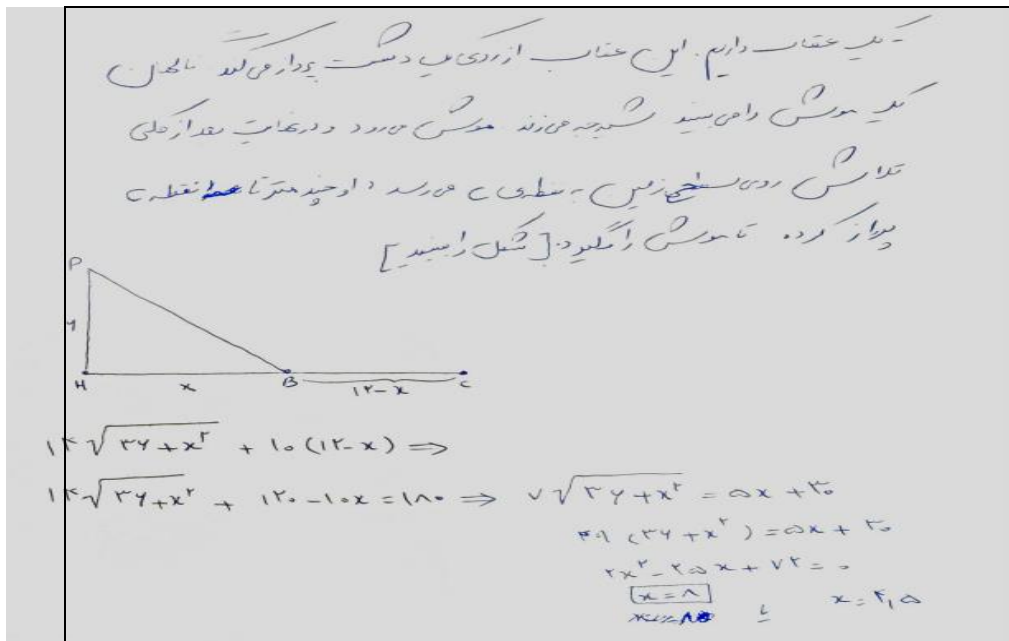 - یک عقاب داریم. این عقاب از روی یک دشت پرواز می‌کند ناگهان
یک موش را می‌بیند شیرجه می‌زند موش می‌رود و در نهایت بعد از کلی
تلاش روی سطح زمین به نقطه‌ی C می‌رسد. او چند متر تا نقطه C
پرواز کرده تا موش را بگیرد. [شکل را ببینید]
P
۶
H x B ۱۲-x C
۱۴√۳۶+x² + ۱۰(۱۲-x) ⇒
۱۴√۳۶+x² + ۱۲۰-۱۰x = ۱۸۰ ⇒ ۷√۳۶+x² = ۵x + ۳۰
۴۹(۳۶+x²) = ۵x + ۳۰
۲x² - ۲۵x + ۷۲ = ۰
x = ۸ یا x = ۴,۵